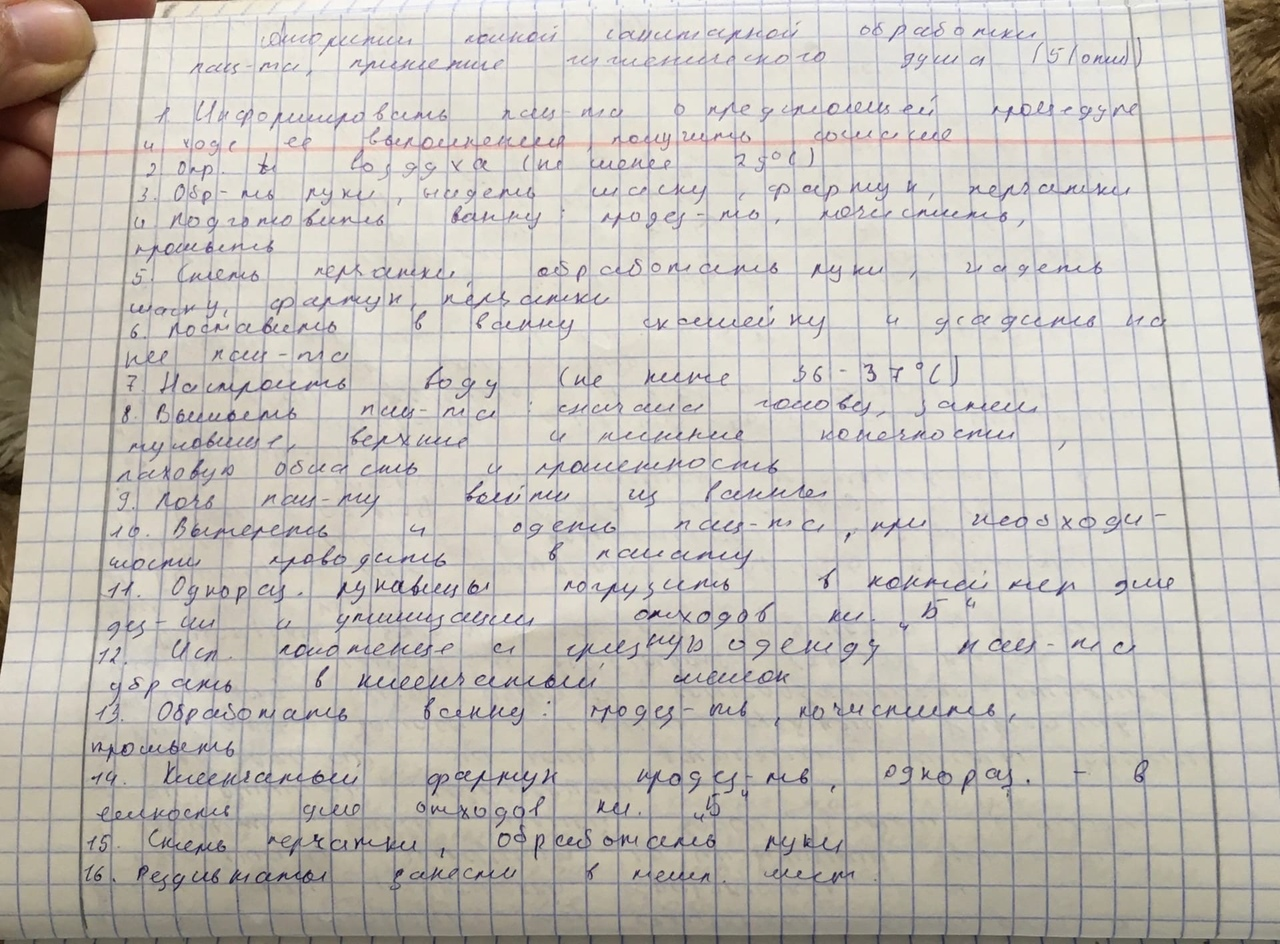 Алгоритм полной санитарной обработки
пац-та, принятие гигиенического душа
1. Информировать пац-та о предстоящей процедуре
и ходе её выполнения, получить согласие
2 Опр. t воздуха (не менее 25°С)
3. Обр-ть руки, надеть маску, фартук, перчатки
4 подготовить ванну: продез-ть, почистить,
промыть
5. Снять перчатки, обработать руки, надеть
маску, фартук, перчатки
6. Поставить в ванну скамейку и усадить на
нее пац-та
7. Настроить воду (не ниже 36-37°С)
8. Вымыть пац-та: сначала голову, затем
туловище, верхние и нижние конечности,
паховую область и промежность
9. Помь пац-ту выйти из ванны
10. Вытереть и одеть пац-та, при необходи-
мости проводить в палату
11. Однораз. рукавицы погрузить в контейнер для
дез-ии и утилизации отходов кл. „Б"
12. Исп. полотенце и грязную одежду пац-та
убрать в клеенчатый мешок
13. Обработать ванну: продез-ть, почистить,
промыть
14. Клеенчатый фартук продез-ть, однораз. - в
емкость для отходов кл. „Б"
15. Снять перчатки, обработать руки
16. Результаты занести в темп. лист.